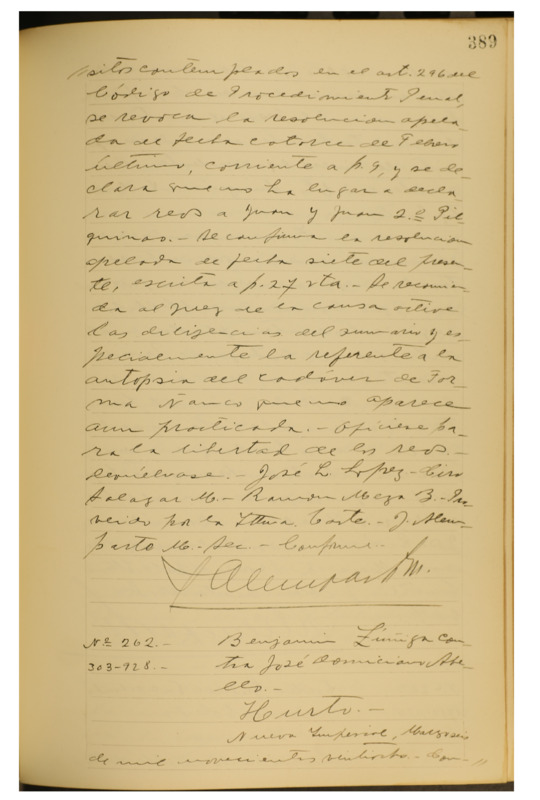 389
"sitos contemplados en el art. 296 del
Código de Procedimiento Penal,
se revoca la resolucion apela-
da de fecha catorce de Febrero
último, corriente a f. 9, y se de-
clara que no ha lugar a decla-
rar reos a Juan y Juan 2.º Pil-
quinao.- Se confirma la resolucion
apelada de fecha siete del presen-
te, escrita a f. 27 vta.- Se recomien-
da al juez de la causa active
las diligencias del sumario y es-
pecialmente la referente a la
autopsia del cadáver de For-
ma Ñanco que no aparece
aun practicada.- Ofíciese pa-
ra la libertad de los reos.-
devuélvase.- José L. Lopez- Ciro
Salazar M.- Ramon Meza B.- Pro-
veido por la Iltma. Corte.- J. Alem-
parte M.- Sec.- Conforme.-
J. Alemparte M.
Nº 262.-
303-928.-
Benjamin Zúñiga con-
tra José Domiciano Abe-
llo.-
Hurto.-
Nueva Imperial, Marzo seis
de mil novecientos veintiocho.- Com-"